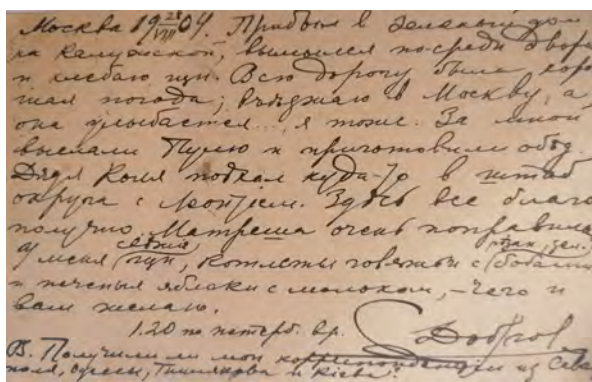 Москва 19 28/VIII 04. Прибыл в зеленый дом
на Калужской, вымылся по-среди двора
и хлебаю щи. Всю дорогу была хоро
шая погода; въезжаю в Москву, а
она улыбается... я тоже. За мной
выслали Пулю и приготовили обед.
Дядя Коля подкал куда-то в штаб
округа с Леонтьем. Здесь все благо
получно. Матреша очень поправила
У меня свежие щи, котлеты говяжьи с бобами
и печеныя яблоки с молоком, – чего и
вам желаю.
1.20 по петерб. вр. Добров
PS. Получили ли мои корреспонденции из Сева
поля, Одессы, и Кіева?